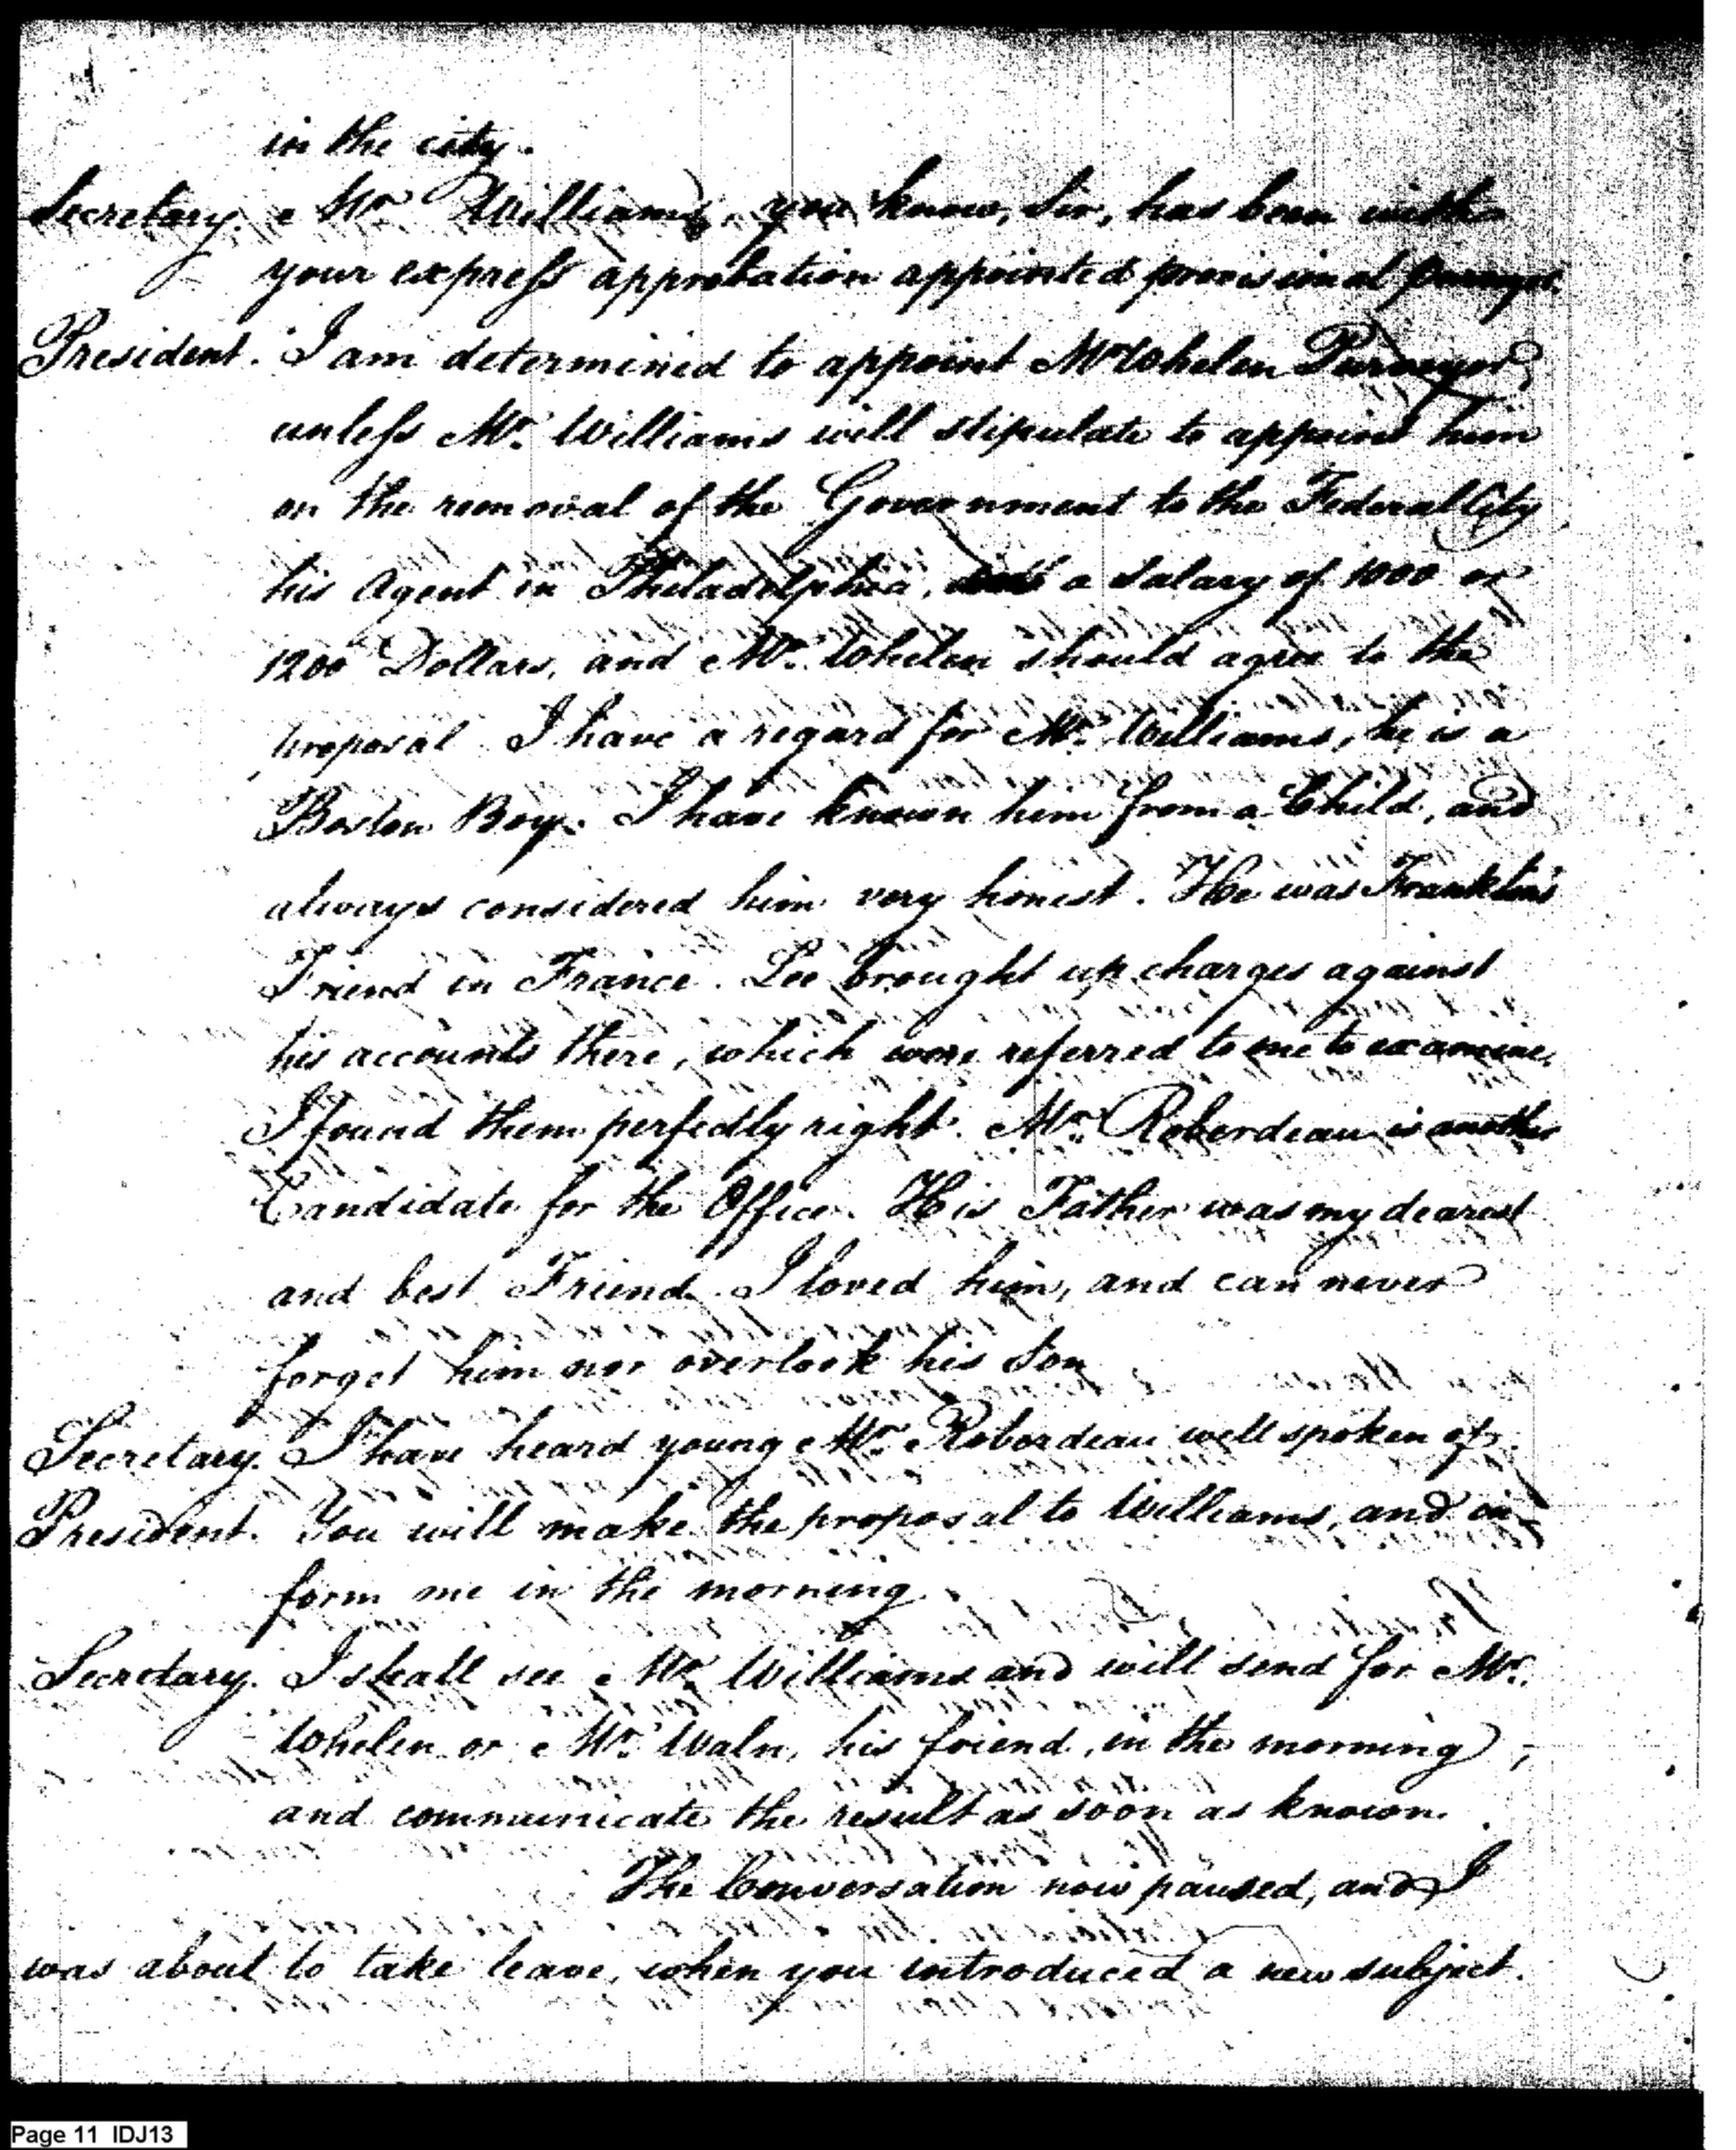 in the city.
Secretary. Mr. Williams, you know, Sir, has been with
your express approbation appointed provisional
President. I am determined to appoint Mr Whelen Purveyor,
unless Mr. Williams will stipulate to appoint him
on the removal of the Government to the Federal City
his Agent in Philadelphia, a salary of 1000 or
1200 Dollars, and Mr. Whelen should agree to the
proposal. I have a regard for Mr. Williams, he is a
Boston Boy. I have known him from a Child, and
always considered him very honest. He was Franklin's
Friend in France. Lee brought up charges against
his accounts there, which were referred to me to examine.
I found them perfectly right. Mr. Roberdeau is another
Candidate for the Office. His Father was my dearest
and best Friend. I loved him, and can never
forget him nor overlook his Son
Secretary. I have heard young Mr. Roberdeau well spoken of.
President. You will make the proposal to Williams, and in-
form me in the morning.
Secretary. I shall see Mr. Williams and will send for Mr.
Whelen or Mr. Waln, his friend, in the morning,
and communicate the result as soon as known.
The Conversation now paused, and I
was about to take leave, when you introduced a new subject.
Page 11 IDJ13